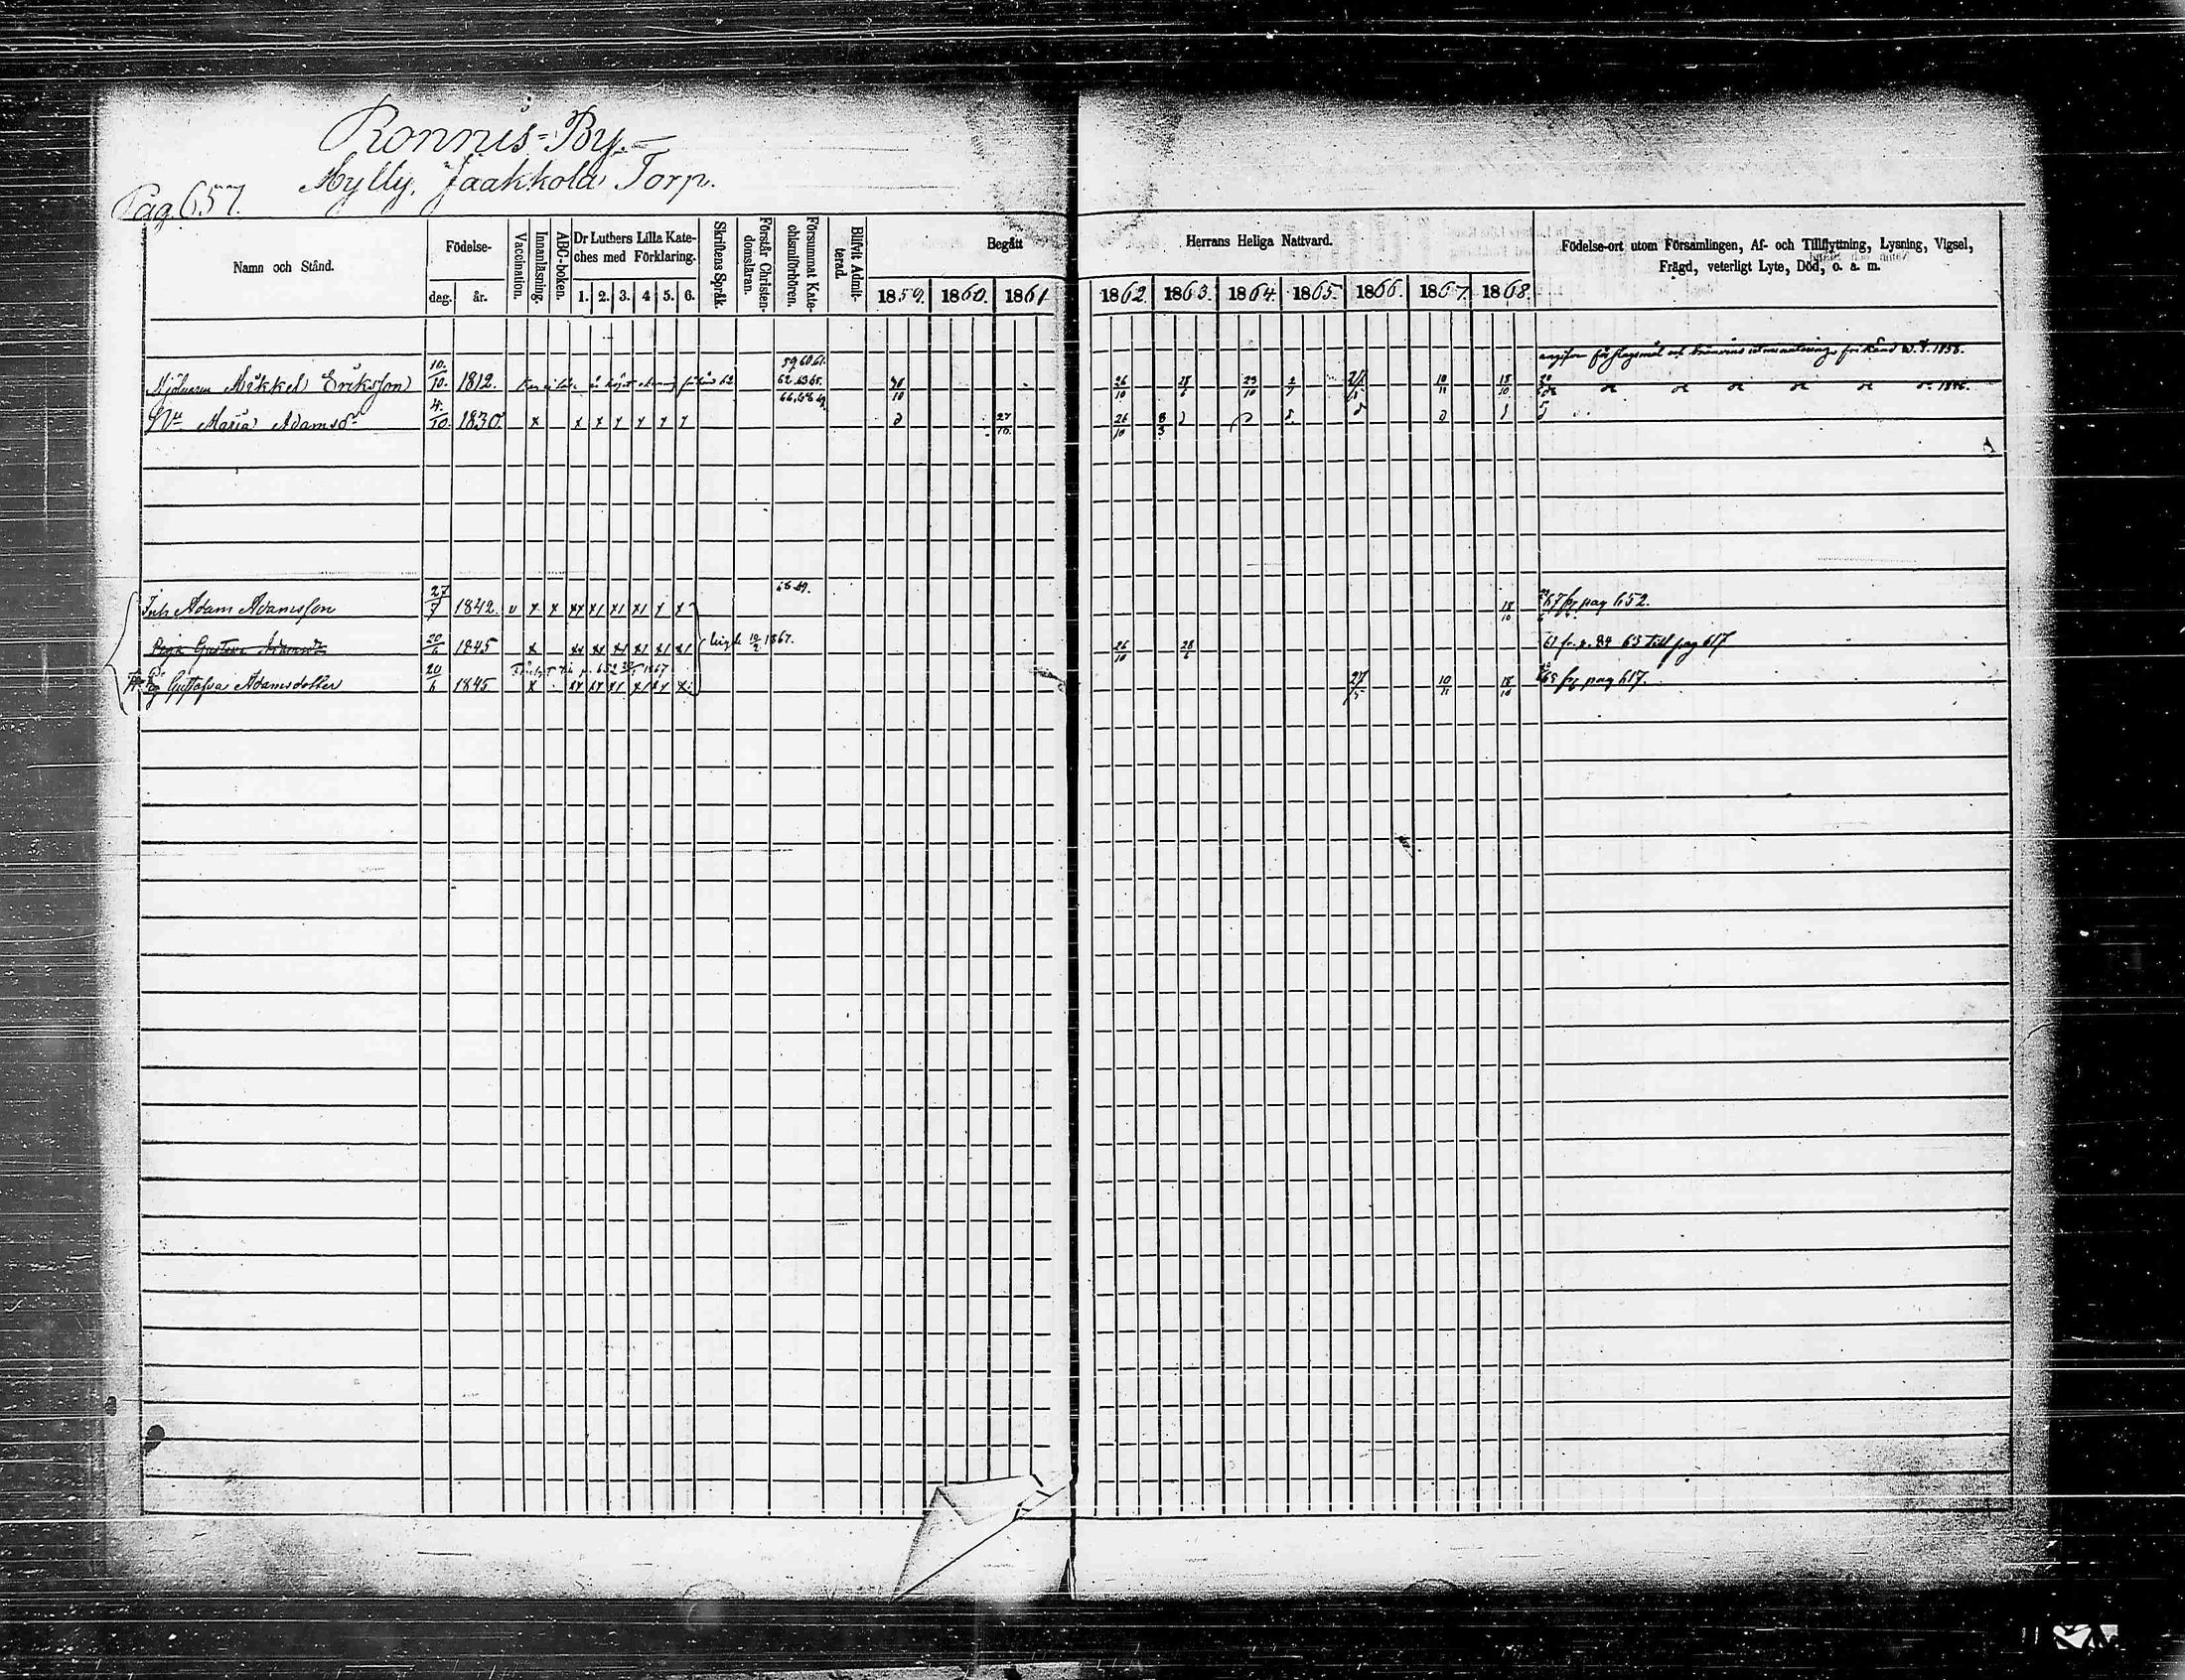 Ronnis=By.
Mylly, Jaakkola Torp.
Pag. 657.
Namn och Stånd.
Födelse-
dag. år.
Vaccination.
Innanläsning.
ABC-boken.
Dr Luthers Lilla Kate-
ches med Förklaring.
1. 2. 3. 4 5. 6.
Skriftens Språk.
Förstår Christen-
domsläran.
Försummat Kate-
chismiförhören.
Blifvit Admit-
terad.
Begått
1859. 1860. 1861
Herrans Heliga Nattvard.
1862. 1863. 1864. 1865. 1866. 1867. 1868.
Födelse-ort utom Församlingen, Af- och Tillflyttning, Lysning, Vigsel,
Frägd, veterligt Lyte, Död, o. a. m.
59 60 61.
1858.
Mikkel Eriksson 10/10. 1812. 30/10 26/10 28/6 23/10 10/11 18/10
Maria Adamsdr 4/10. 1830. x x x x x x x 27/10. 26/10 8/3
Joh Adam Adamsson 27/7 1842. v x x xx x1 x1 x1 x x 68 69. 18/10 67 fr pag 652.
Gustava Adamsdr 20/6 1845 x 1867. 26/10 28/6 63 till pag 617
Gustafva Adamsdotter 20/6 1845 x 27/5 10/11 18/10 65 fr pag 617.